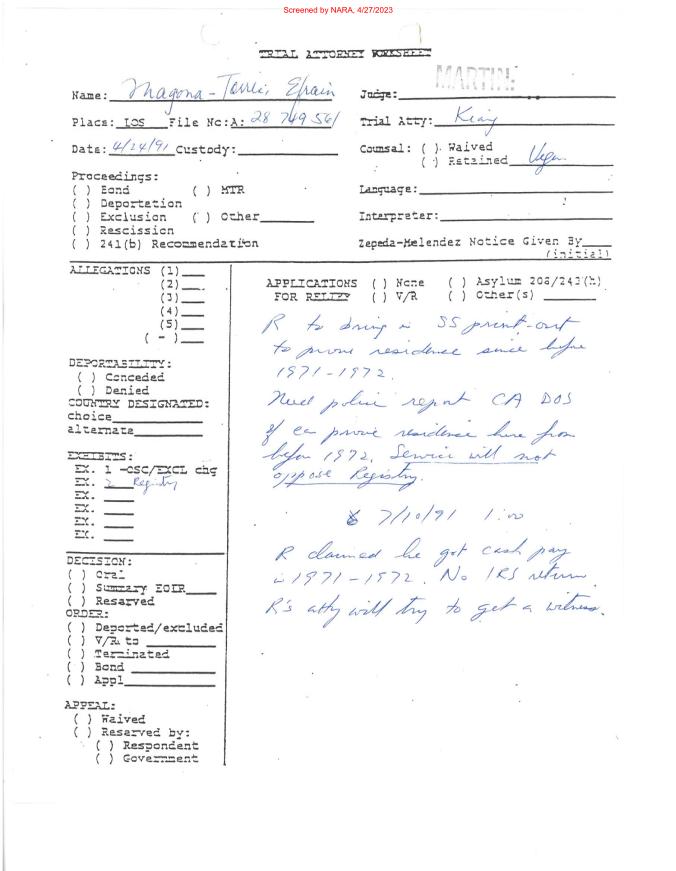 Screened by NARA, 4/27/2023
TRIAL ATTORNEY WORKSHEET
MARTIN
Name: Magona-Torres, Efrain
Judge:
Place: LOS File No:A: 28 749 561
Trial Atty: King
Date: 4/24/91 Custody:
Counsel: ( ) Waived
( ) Retained Vega
Proceedings:
( ) Bond ( ) MTR
( ) Deportation
( ) Exclusion ( ) Other
( ) Rescission
( ) 241(b) Recommendation
Language:
Interpreter:
Zepeda-Melendez Notice Given By
(initial)
ALLEGATIONS (1)
(2)
(3)
(4)
(5)
( - )
DEPORTABILITY:
( ) Conceded
( ) Denied
COUNTRY DESIGNATED:
choice
alternate
EXHIBITS:
EX. 1 -OSC/EXCL chg
EX. 2 Registry
EX.
EX.
EX.
EX.
DECISION:
( ) Oral
( ) Summary EOIR
( ) Resarved
ORDER:
( ) Deported/excluded
( ) V/R to
( ) Terminated
( ) Bond
( ) Appl
APPEAL:
( ) Waived
( ) Resarved by:
( ) Respondent
( ) Government
APPLICATIONS ( ) None ( ) Asylum 208/243(h)
FOR RELIEF ( ) V/R ( ) Other(s)
R to bring in SS print-out
to prove residence since before
1971-1972.
Need police report CA DOS
If can prove residence here from
before 1972, Service will not
oppose Registry.
7/10/91 1:00
R claimed he got cash pay
in 1971-1972. No IRS return.
R's atty will try to get a witness.